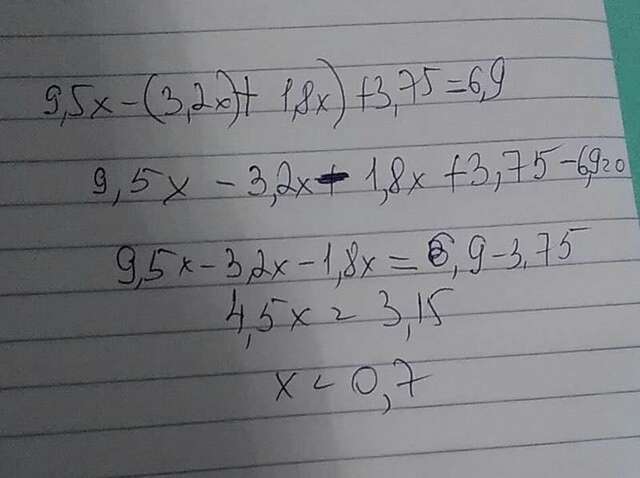 9,5x-(3,2x)+ 1,8x)+3,75=6,9
9,5x-3,2x-1,8x+3,75-6,9=0
9,5x-3,2x-1,8x=6,9-3,75
4,5x=3,15
x=0,7